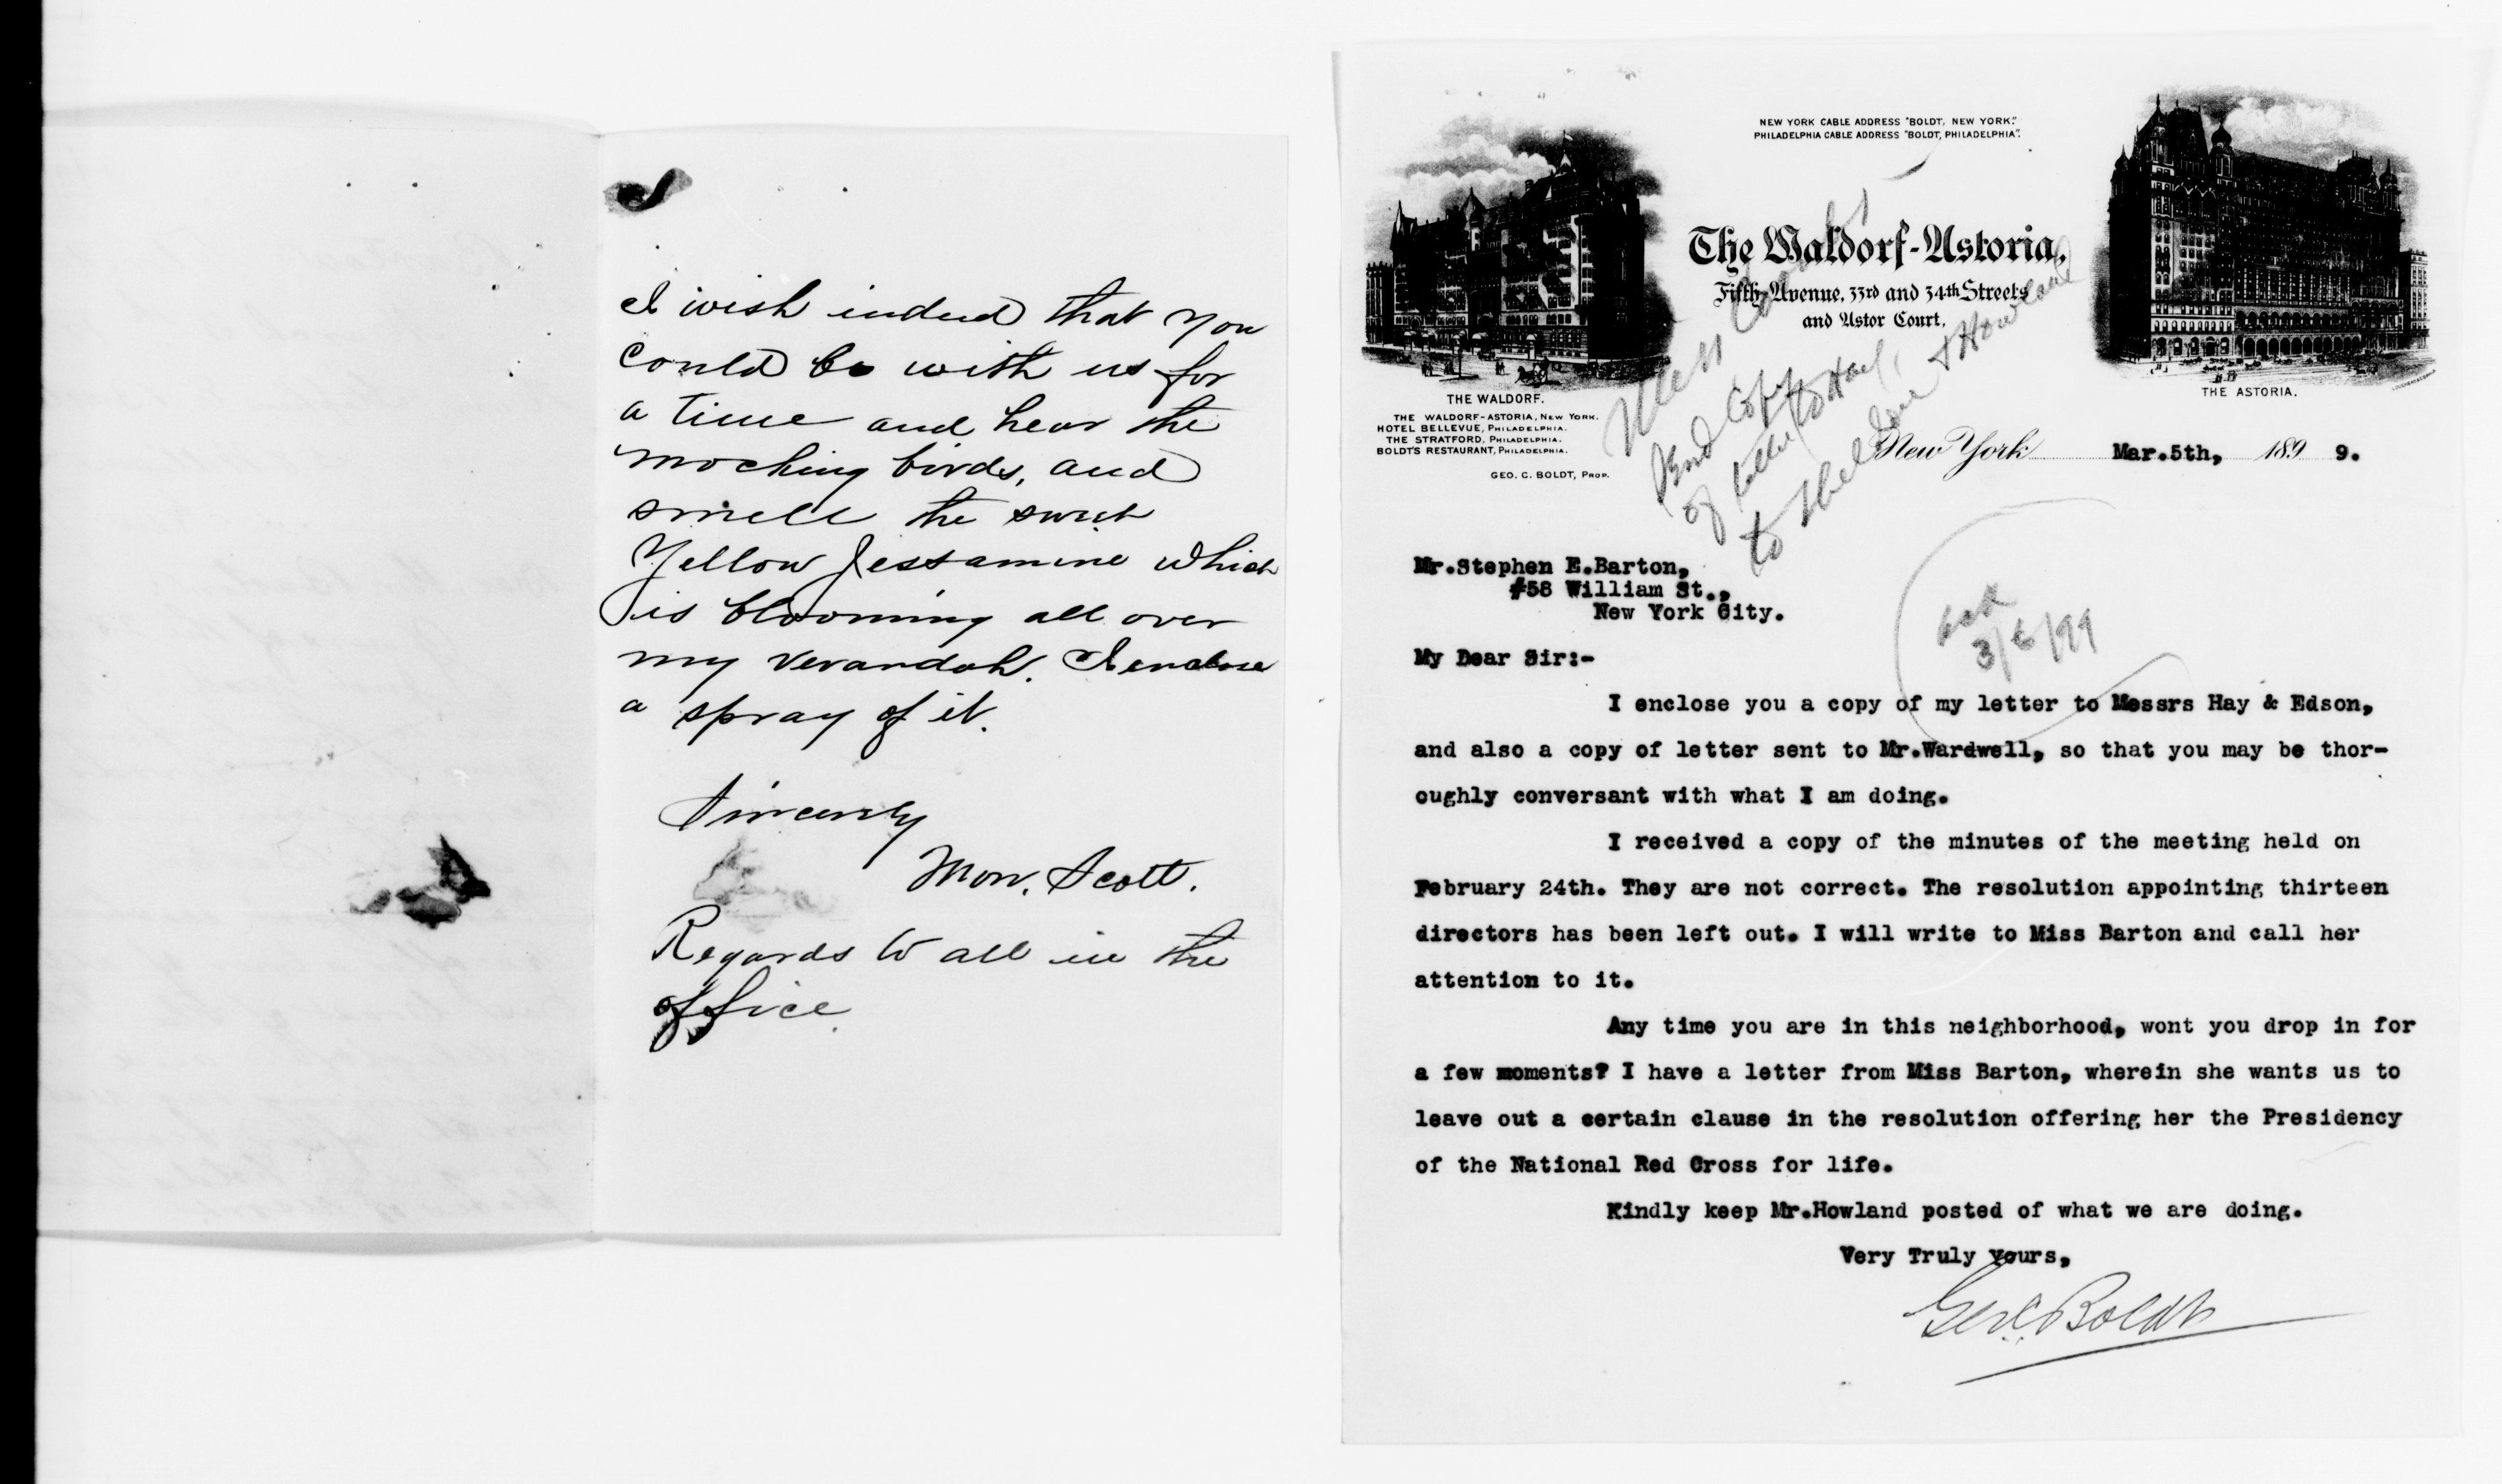 I wish indeed that you
could be with us for
a time and hear the
mocking birds, and
smell the sweet
Yellow Jessamine which
is blooming all over
my verandah. I enclose
a spray of it.
Sincerely
Mon. Scott.
Regards to all in the
office.
NEW YORK CABLE ADDRESS "BOLDT, NEW YORK."
PHILADELPHIA CABLE ADDRESS "BOLDT, PHILADELPHIA".
The Waldorf-Astoria,
Fifth Avenue, 33rd and 34th Streets
and Astor Court.
THE WALDORF.
THE WALDORF-ASTORIA, NEW YORK.
HOTEL BELLEVUE, PHILADELPHIA.
THE STRATFORD, PHILADELPHIA.
BOLDT'S RESTAURANT, PHILADELPHIA.
GEO. C. BOLDT, PROP.
THE ASTORIA.
Copy
of letter to Hay,
to & Howland
New York Mar.5th, 189 9.
Mr.Stephen E.Barton,
#58 William St.,
New York City.
3/6/99
My Dear Sir:-
I enclose you a copy of my letter to Messrs Hay & Edson,
and also a copy of letter sent to Mr.Wardwell, so that you may be thor-
oughly conversant with what I am doing.
I received a copy of the minutes of the meeting held on
February 24th. They are not correct. The resolution appointing thirteen
directors has been left out. I will write to Miss Barton and call her
attention to it.
Any time you are in this neighborhood, wont you drop in for
a few moments? I have a letter from Miss Barton, wherein she wants us to
leave out a certain clause in the resolution offering her the Presidency
of the National Red Cross for life.
Kindly keep Mr.Howland posted of what we are doing.
Very Truly yours,
Geo.C.Boldt